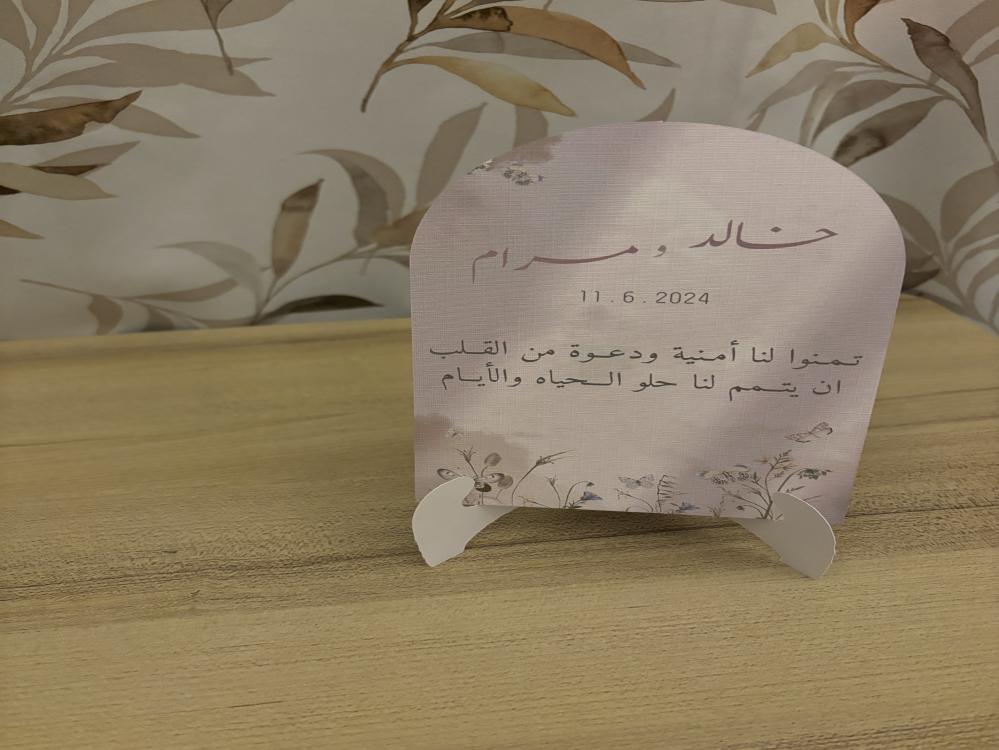 خالد و مرام
11.6.2024
تمنوا لنا أمنية ودعوة من القلب
ان يتمم لنا حلو الحياه والأيام